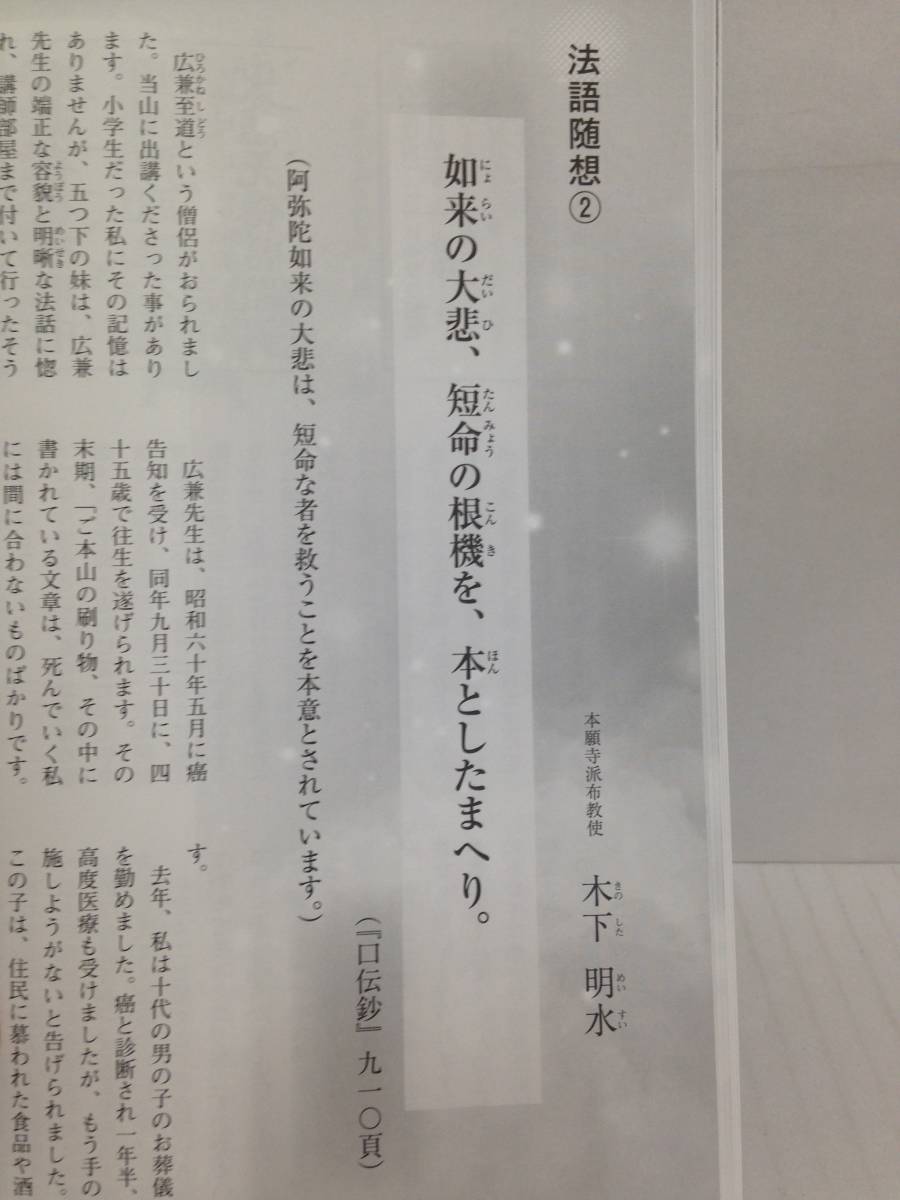 法語随想②
本願寺派布教使 木下 明水
きのした めいすい
如来の大悲、短命の根機を、本としたまへり。
にょらい だいひ たんみょう こんき ほん
(『口伝鈔』九一〇頁)
(阿弥陀如来の大悲は、短命な者を救うことを本意とされています。)
広兼至道という僧侶がおられまし
ひろかねしどう
た。当山に出講くださった事があり
ます。小学生だった私にその記憶は
ありませんが、五つ下の妹は、広兼
先生の端正な容貌と明晰な法話に惚
ようぼう めいせき
れ、講師部屋まで付いて行ったそう
広兼先生は、昭和六十年五月に癌
告知を受け、同年九月三十日に、四
十五歳で往生を遂げられます。その
末期、「ご本山の刷り物、その中に
書かれている文章は、死んでいく私
には間に合わないものばかりです。
す。
去年、私は十代の男の子のお葬儀
を勤めました。癌と診断され一年半、
高度医療も受けましたが、もう手の
施しようがないと告げられました。
この子は、住民に慕われた食品や酒